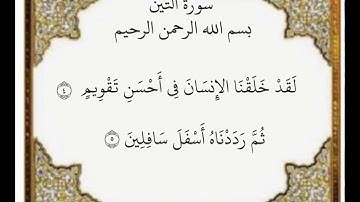 سورة التين
بسم الله الرحمن الرحيم
لَقَدْ خَلَقْنَا الإِنْسَانَ فِى أَحْسَنِ تَقْوِيمٍ ٤
ثُمَّ رَدَدْنَاهُ أَسْفَلَ سَافِلِينَ ٥